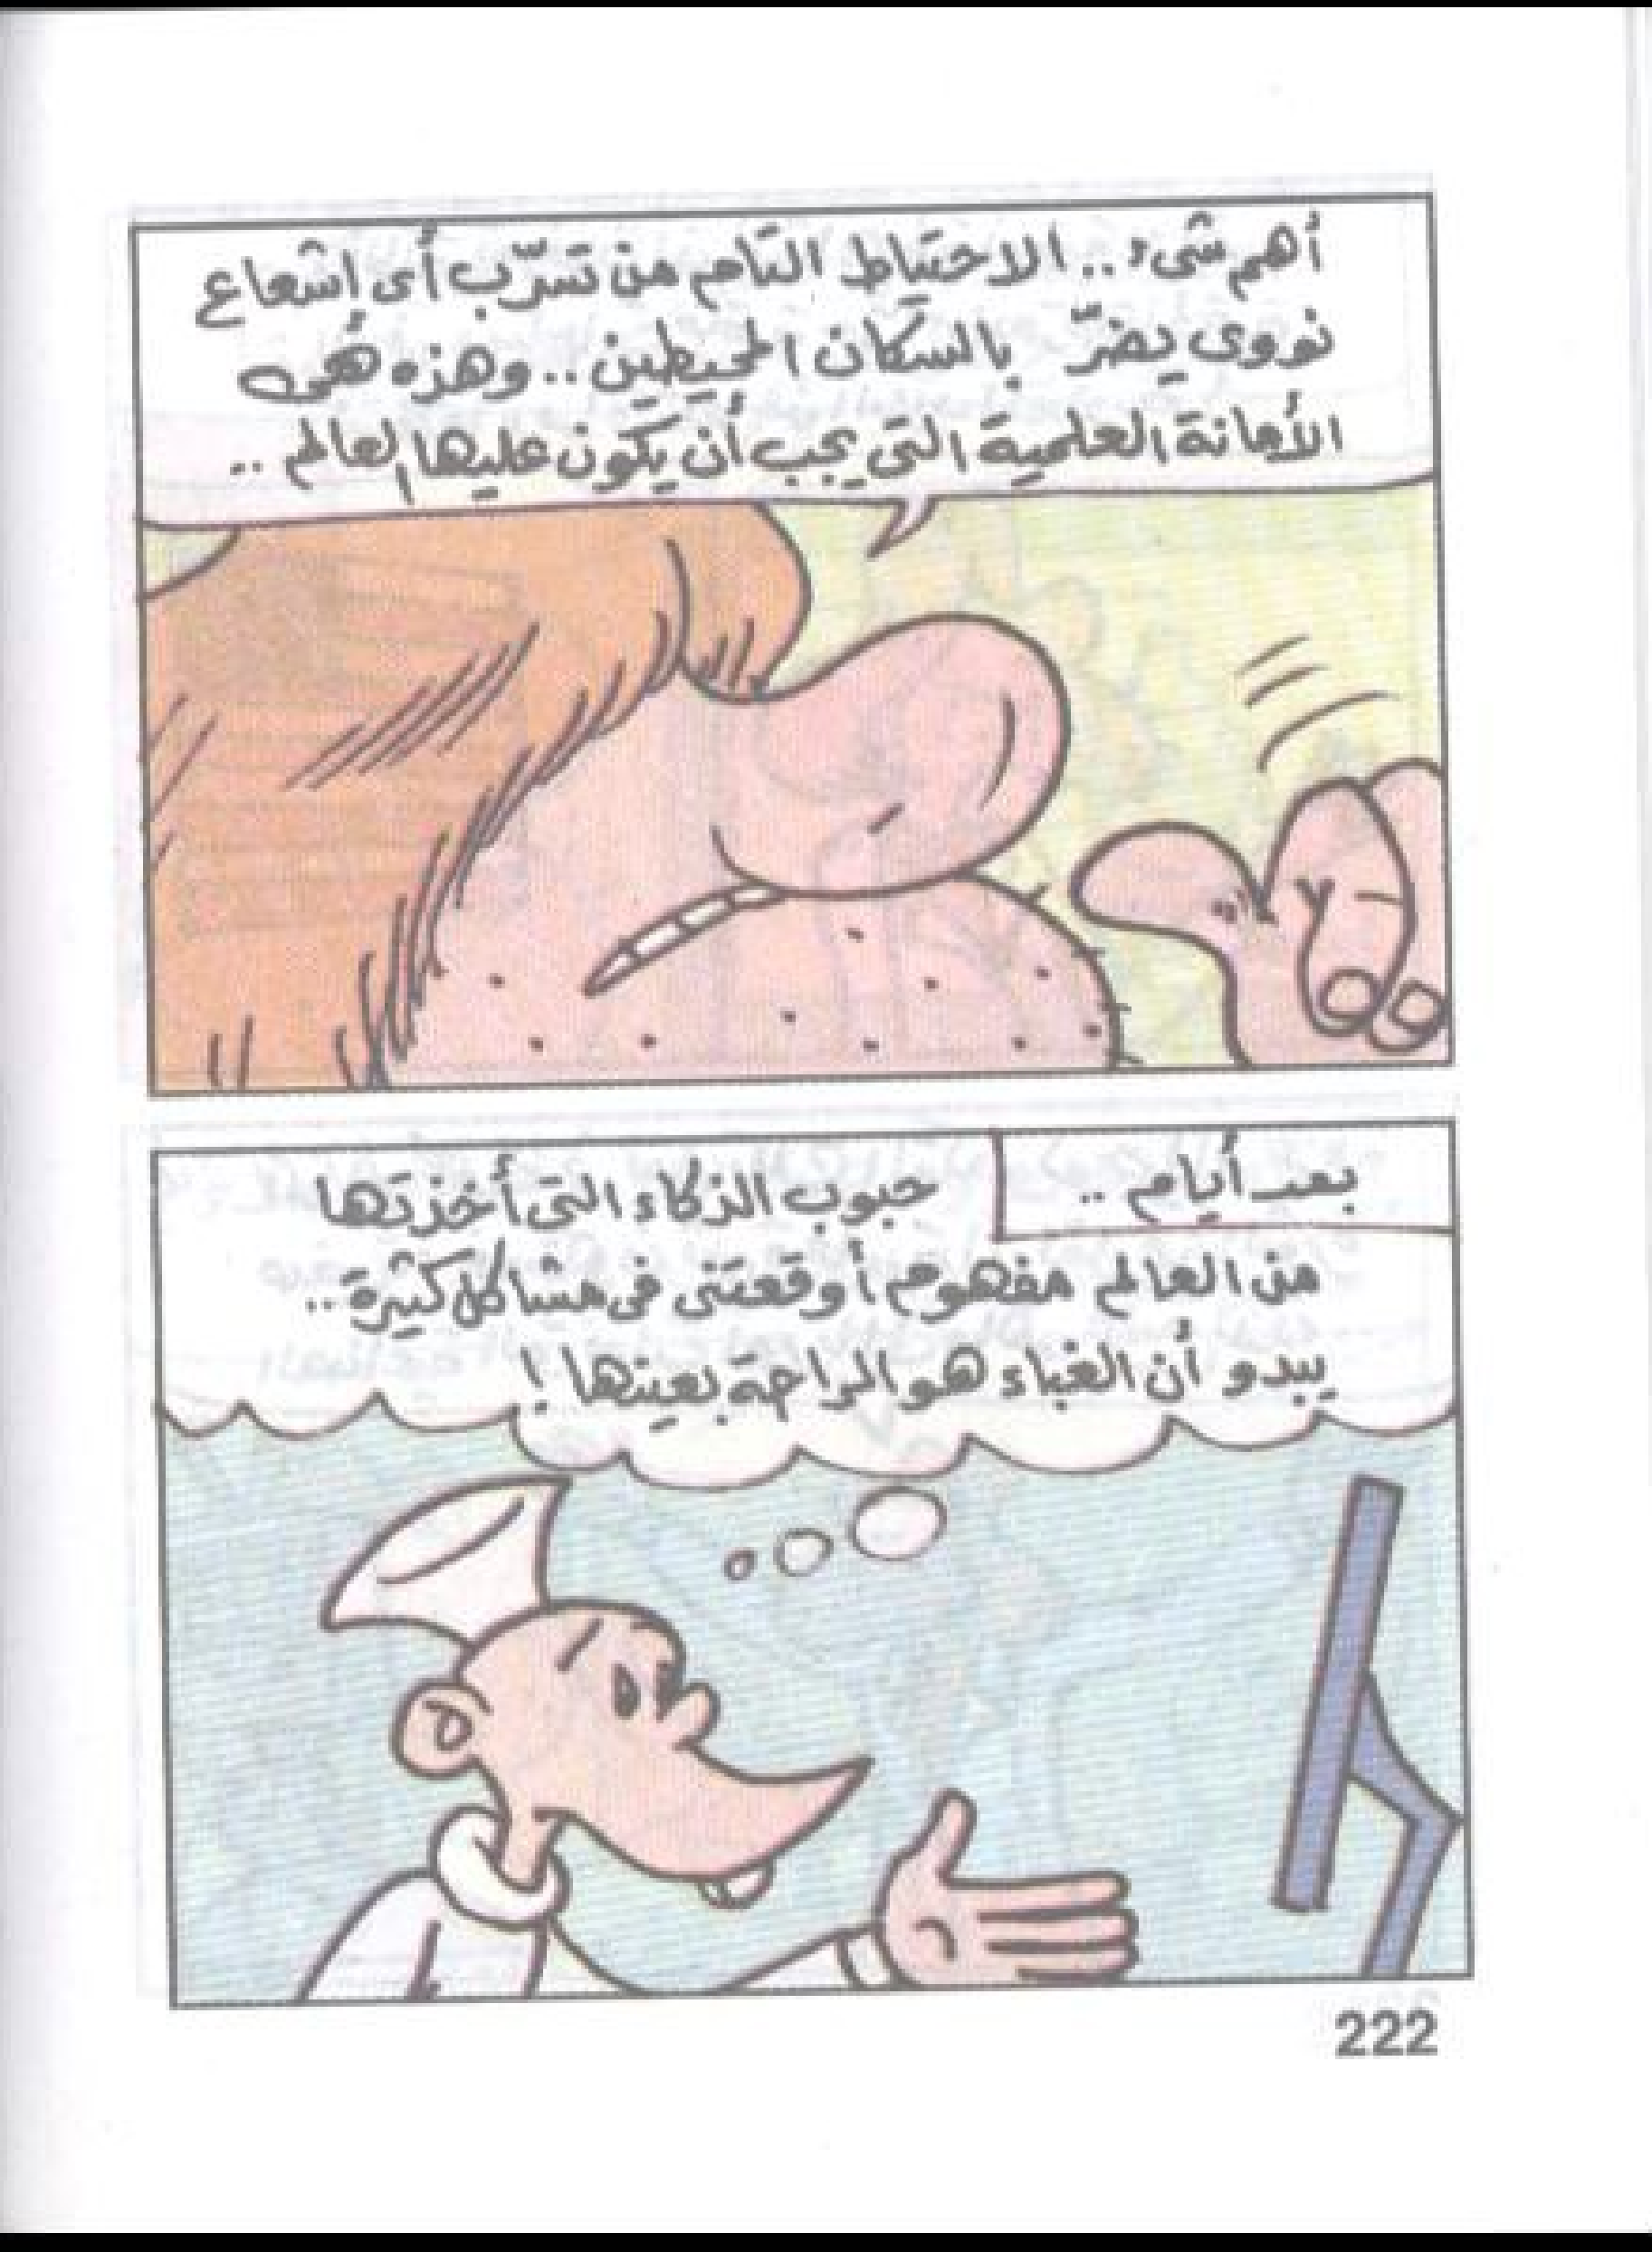 أهم شىء .. الاحتياط التام من تسرّب أى إشعاع
نووى يضرّ بالسكان المحيطين .. وهذه هى
الأمانة العلمية التى يجب أن يكون عليها العالم ..
بعد أيام ..
حبوب الذكاء التى أخذتها
من العالم مفهوم أوقعتنى فى مشاكل كثيرة ..
يبدو أن الغباء هو الراحة بعينها !
222